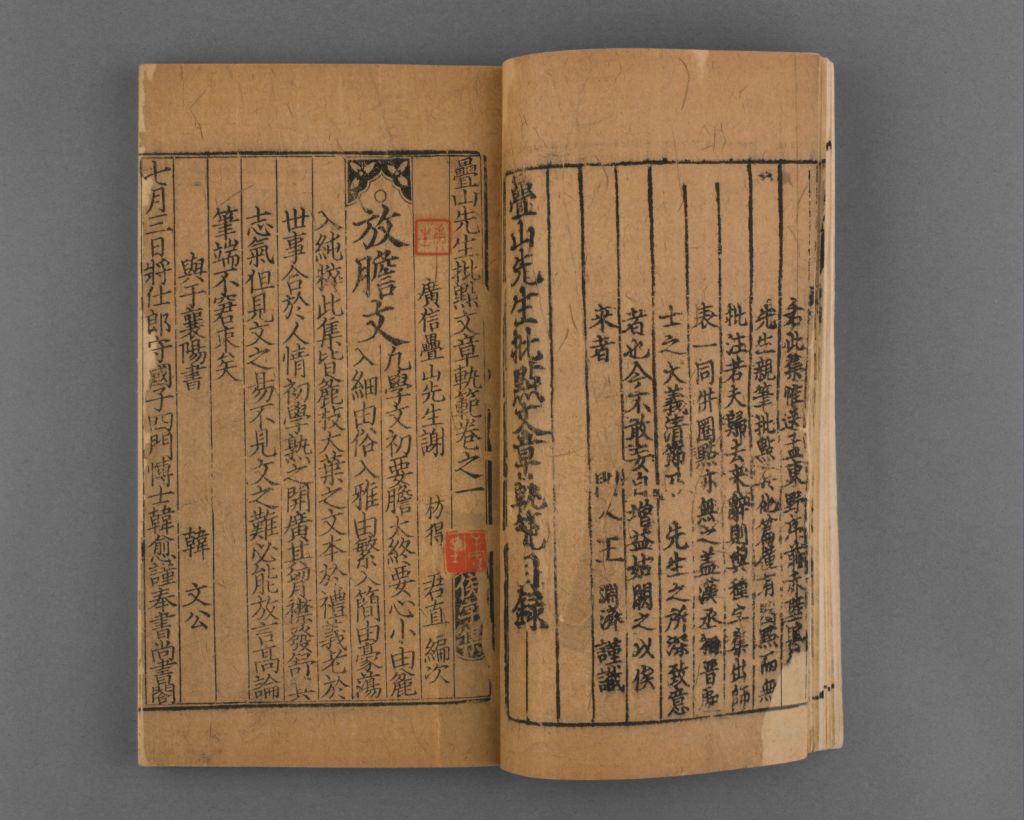 右此集惟送孟東野序前赤壁賦
先生親筆批點其他篇僅有圈點而無
批注若夫歸去來辭則與種字集出師
表一同併圈點亦無之盖漢丞相晋處
士之大義清節乃 先生之所深致意
者也今不敢妄自增益姑闕之以俟
來者 門人王 淵濟謹識
疊山先生批點文章軌範目錄
疊山先生批點文章軌範卷之一 侯字集
廣信疊山先生謝 枋得 君直 編次
放膽文 凡學文初要膽大終要心小由麄
入細由俗入雅由繁入簡由豪蕩
入純粹此集皆麄枝大葉之文本於禮義老於
世事合於人情初學熟之開廣其胷襟發舒其
志氣但見文之易不見文之難必能放言高論
筆端不窘束矣
與于襄陽書 韓 文公
七月三日將仕郎守國子四門博士韓愈謹奉書尚書閣